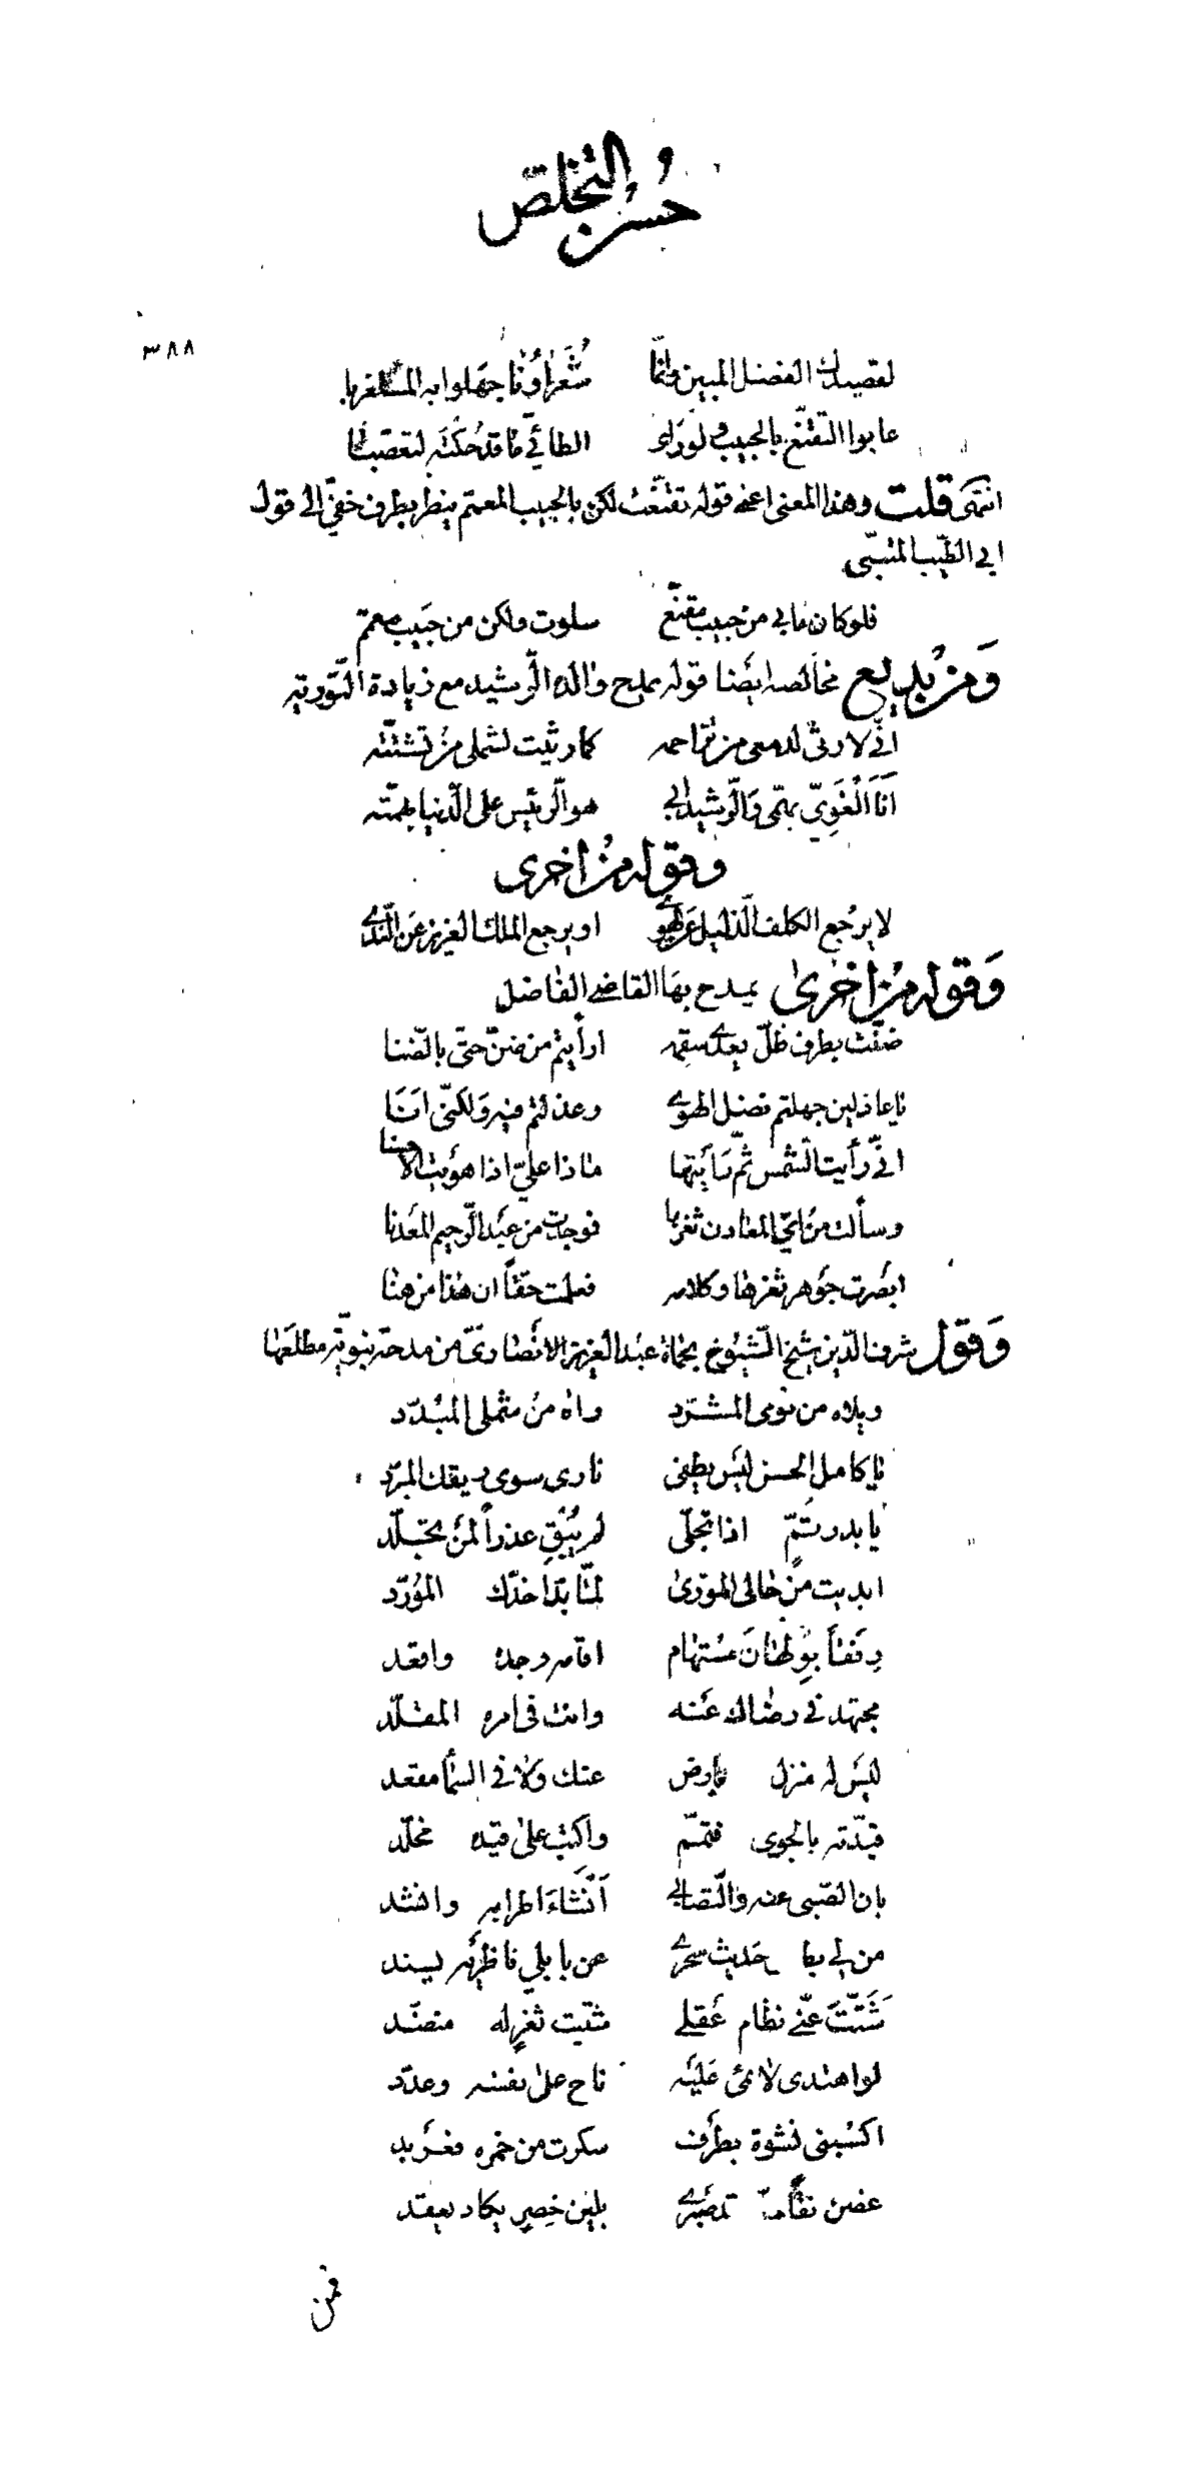 حُسْنُ التخلّص
٣٨٨
لقصيدك الفضل المبين وانّما شُعَراؤُنا جهَلوا به المستغربا
عابوا التقنّع بالحبيب ولو رأى الطائيّ ما قد حُكْتَه لتعصّبا
انتهى قلت وهذا المعنى اعنى قوله تقنّعت لكن بالحبيب المعمّم ينظر بطرف خفىّ الى قول
ابى الطيّب المتنبّى
فلو كان ما بى من حبيب مقنّع سلوت ولكن من حَبيب معمّم
وَمن بديع مخالصه ايضا قوله يمدح والده الرّشيد مع زيادة التّورية
انّى لارثى لدمعى من تزاحمه كما رثيت لشملى من تشتّته
اَنَا الْغَوِيّ بهمّى وَالرّشيد ابى هو الرّئيس على الدّنيا بهمّته
وقوله من اخرى
لا يرجع الكلف الذليل عن الهوى او يرجع الملك العزيز عن النّدى
وَقوله من اخرى يمدح بهَا القاضى الفاضل
ضنّت بطرف ظلّ يعدى سقمه ارأيتم من ضنّ حتى بالضّنا
يا عاذلين جهلتم فضل الهوى وعذلتم فيه وَلكنّى اَنَا
انّى رأيت الشّمس ثمّ رأيتها ماذا علىّ اذا هوَيت الاحسنا
وسألت من اىّ المعادن ثغرها فوجدت من عبد الرّحيم المعدنا
ابصرت جوهر ثغرها وكلامه فعلمت حقّاً ان هذا من هنا
وَقول شرف الدّين شيخ الشّيوخ بحماة عبد العزيز الانصارىّ من مدحة نبويّة مطلعها
ويلاه من نومى المشرّد واه من شملى المبدّد
يا كامل الحسن ليس يطفى نارى سوى ريقك المبرّد
يا بدر تمّ اذا تجلّى لم يُبْقِ عذراً لمن تجلّد
ابديت من حالى المورّى لمّا بدا خدّك المُورّد
رِفقاً بِوَلهان مستهام اقامه وجده واقعد
مجتهد فى رضاك عنه وانت فى امره المقلّد
ليس له منزل بارض عنك ولا فى السّما مقعد
قيّدته بالجوى فتمّم واكتب على قيده مخلّد
بان الصّبى عنه والتّصابى اَنْشاءَ اطرابه وانشد
من لى بها حَديث سحرى عن بابلى ناظريه يسند
شَتَّتَ عنّى نظام عَقلى شتيت ثغرٍ له منضّد
لو اهتدى لائمى عَليه ناح على نفسه وعدّد
اكسبنى نشوة بطرف سكرت من خمره فعربد
غصن نقا تصبّرى بلين خصرٍ يكاد يعقد
فمن